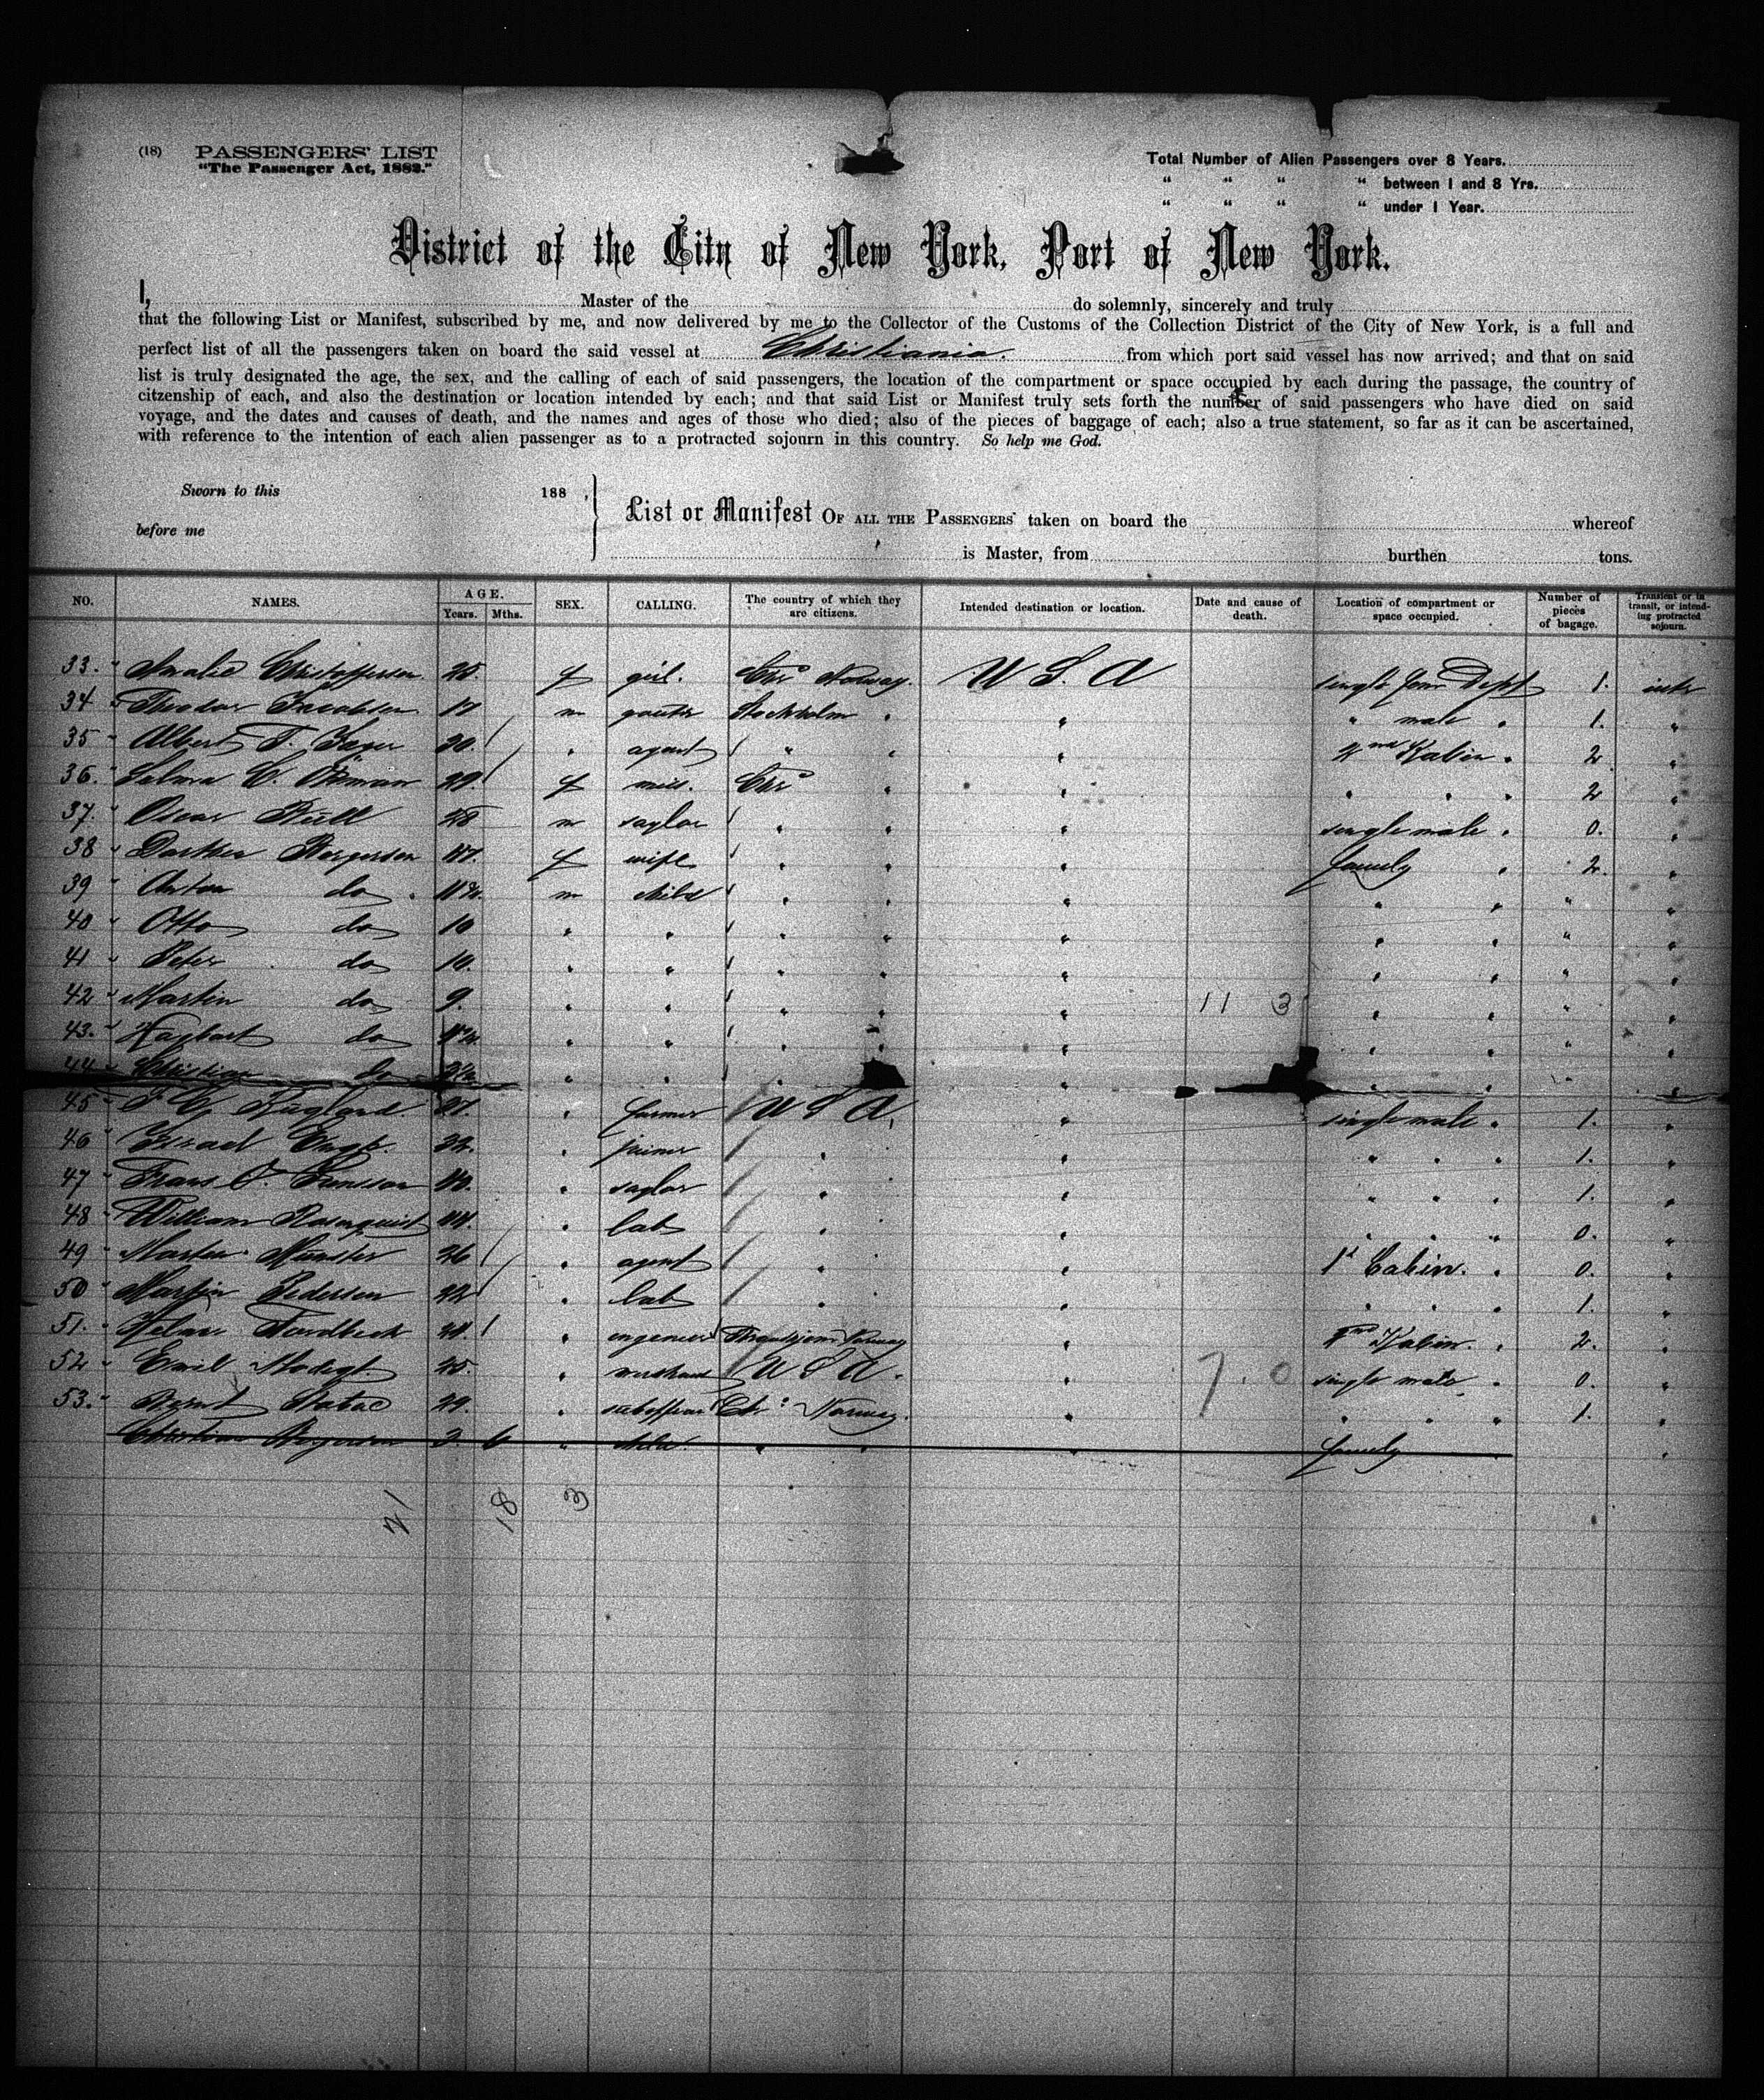 (18) PASSENGERS' LIST
"The Passenger Act, 1882."
Total Number of Alien Passengers over 8 Years.
" " " " between 1 and 8 Yrs.
" " " " under 1 Year.
District of the City of New York, Port of New York.
I, Master of the do solemnly, sincerely and truly
that the following List or Manifest, subscribed by me, and now delivered by me to the Collector of the Customs of the Collection District of the City of New York, is a full and
perfect list of all the passengers taken on board the said vessel at Christiania. from which port said vessel has now arrived; and that on said
list is truly designated the age, the sex, and the calling of each of said passengers, the location of the compartment or space occupied by each during the passage, the country of
citzenship of each, and also the destination or location intended by each; and that said List or Manifest truly sets forth the number of said passengers who have died on said
voyage, and the dates and causes of death, and the names and ages of those who died; also of the pieces of baggage of each; also a true statement, so far as it can be ascertained,
with reference to the intention of each alien passenger as to a protracted sojourn in this country. So help me God.
Sworn to this 188 ,
before me
List or Manifest OF ALL THE PASSENGERS taken on board the whereof
is Master, from burthen tons.
NO. NAMES. AGE. Years. Mths. SEX. CALLING. The country of which they are citizens. Intended destination or location. Date and cause of death. Location of compartment or space occupied. Number of pieces of bagage. Transient or in transit, or intending protracted sojourn.
33. " Amalie Christoffersen f girl. Chr^a Norway. U S A single fem Dept 1.
34 " Theodor Jacobsen 17 m Stockholm " " " male " 1. "
35 " Albert T. 30 " agent " " " 2nd Kabin " 2 "
36. " Selma C. Öhman 29 f miss. Chr^a " " " " " 2 "
37. " Oscar m saylor " " " single male " 0. "
38 " Dorthea f wife " " " family " 2. "
39 " Anton do m child " " " " " " "
40 " Otto do 10 " " " " " " " " "
41 " Peter do 10. " " " " " " " " "
42 " Martin do 9. " " " " " 11 3 " " " "
43. " Hagbart do " " " " " " " " "
44 " Christian do " " " " " " " " "
45 " " farmer U S A. " single male " 1. "
46 " Israel " joiner " " " " " 1. "
47 " Frans " saylor " " " " " 1. "
48 " William Rosenquist " lab " " " " " 0. "
49 " Marten Munster 26 " agent " " 1st Cabin. " 0. "
50 " Martin Pedersen " lab " " " " " 1. "
51. " " engeneer Norway " 2nd Kabin. " 2. "
52 " Emil " merchant U S A. " 7. 0 single male " 0. "
53. " Bernt " Chr^a Norway. " " " " 1. "
Christian 3. 6 " child. " " " family "
21 18 3